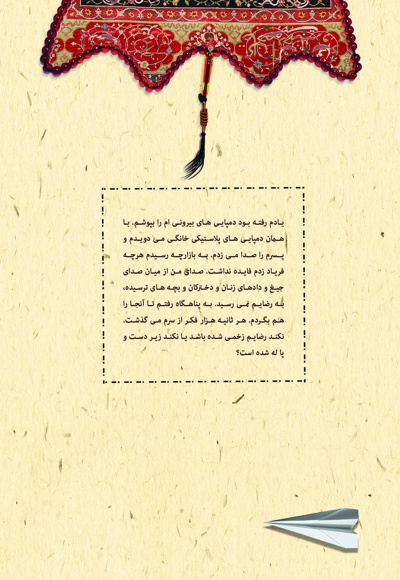 یادم رفته بود دمپایی های بیرونی ام را بپوشم. با
همان دمپایی های پلاستیکی خانگی می دویدم و
پسرم را صدا می زدم. به بازارچه رسیدم هرچه
فریاد زدم فایده نداشت. صدای من از میان صدای
جیغ و دادهای زنان و دخترکان و بچه های ترسیده،
به رضایم نمی رسید. به پناهگاه رفتم تا آنجا را
هم بگردم. هر ثانیه هزار فکر از سرم می گذشت.
نکند رضایم زخمی شده باشد یا نکند زیر دست و
پا له شده است؟